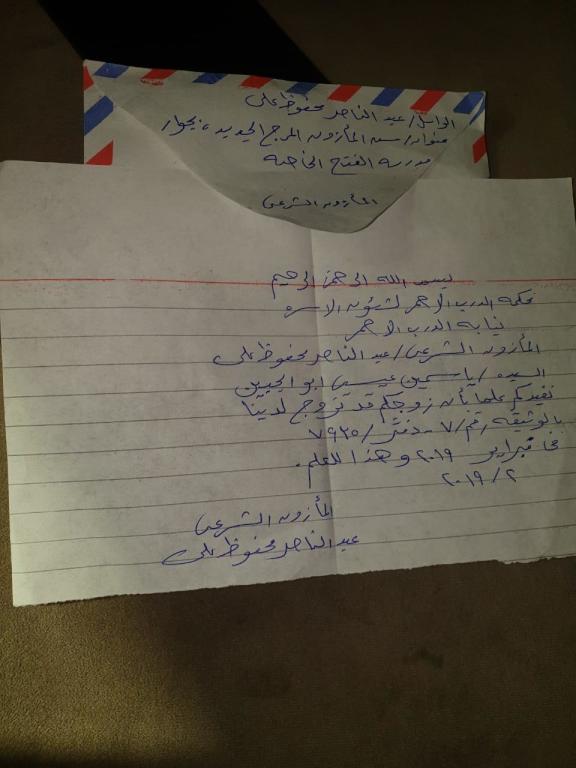 الراسل/ عبد الناصر محفوظ على
عنوان/ سـ المأزون المرج الجديده، بجوار
مدرسه الفتح الخاصه
المأزون الشرعى
بسم الله الرحمن الرحيم
محكمه الدرب الاحمر لشئون الاسره
نيابه الدرب الاحمر
المأزون الشرعى/ عبد الناصر محفوظ على
السيده/ ياسمين عيسى ابو الجبين
نفيدكم علما بأن زوجكم قد تزوج لدينا
بالوثيقه رقم/ ٧ - دفتر/ ٧٩٢٥
فى فبراير ٢٠١٩ وهذا للعلم.
٢/ ٢٠١٩
المأزون الشرعى
عبد الناصر محفوظ على